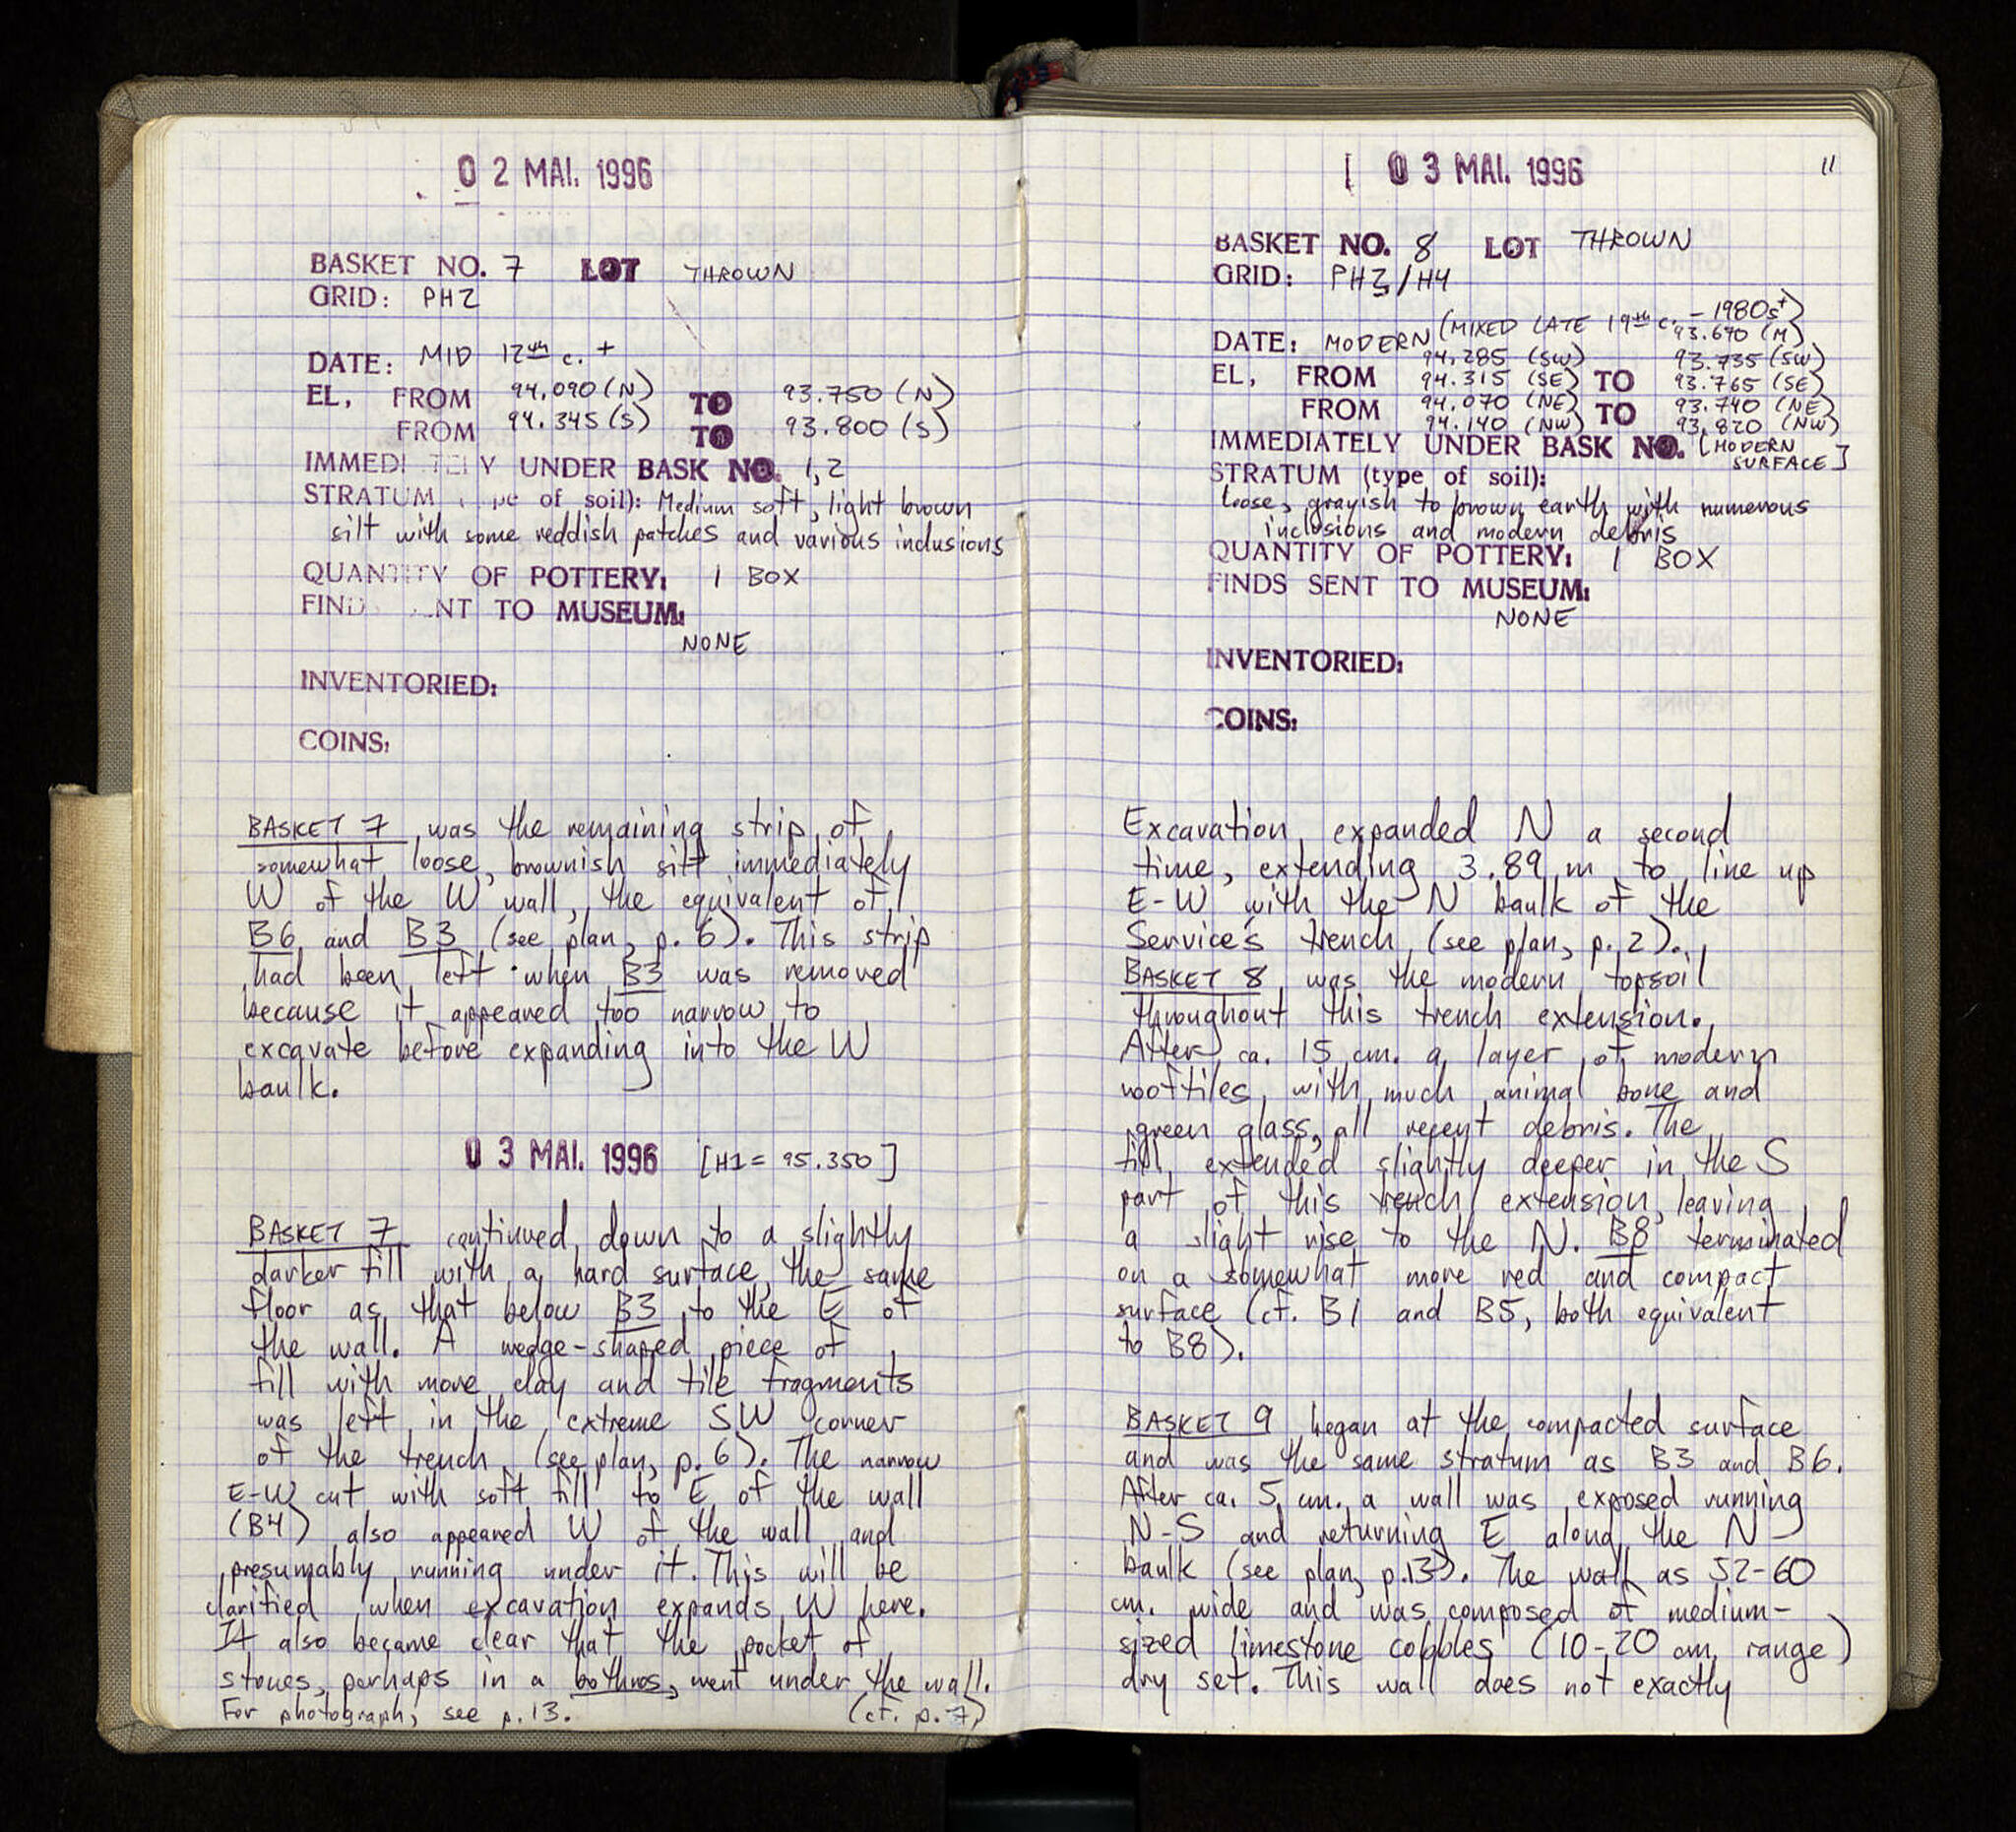 02 MAI. 1996
BASKET NO. 7 LOT THROWN
GRID: PHZ
DATE: MID 12th c. +
EL, FROM 94.090 (N) TO 93.750 (N)
FROM 94.345 (S) TO 93.800 (S)
IMMEDI TELY UNDER BASK NO. 1,2
STRATUM ( pe of soil): Medium soft, light brown
silt with some reddish patches and various inclusions
QUANTITY OF POTTERY: 1 BOX
FIND NT TO MUSEUM:
NONE
INVENTORIED:
COINS:
BASKET 7 was the remaining strip of
somewhat loose, brownish silt immediately
W of the W wall, the equivalent of
B6 and B3 (see plan, p. 6). This strip
had been left when B3 was removed
because it appeared too narrow to
excavate before expanding into the W
baulk.
03 MAI. 1996 [H1 = 95.350]
BASKET 7 continued down to a slightly
darker fill with a hard surface, the same
floor as that below B3 to the E of
the wall. A wedge-shaped piece of
fill with more clay and tile fragments
was left in the extreme SW corner
of the trench (see plan, p. 6). The narrow
E-W cut with soft fill to E of the wall
(B4) also appeared W of the wall and
presumably running under it. This will be
clarified when excavation expands W here.
It also became clear that the pocket of
stones, perhaps in a bothros, went under the wall.
For photograph, see p. 13. (cf. p. 7)
03 MAI. 1996
11
BASKET NO. 8 LOT THROWN
GRID: PHZ/H4
DATE: MODERN (MIXED LATE 19th c. - 1980s+)
93.670 (M)
94.285 (SW) 93.735 (SW)
EL, FROM 94.315 (SE) TO 93.765 (SE)
FROM 94.070 (NE) TO 93.740 (NE)
94.140 (NW) 93.820 (NW)
IMMEDIATELY UNDER BASK NO. [MODERN
SURFACE]
STRATUM (type of soil):
Loose, grayish to brown earth with numerous
inclusions and modern debris
QUANTITY OF POTTERY: 1 BOX
FINDS SENT TO MUSEUM:
NONE
INVENTORIED:
COINS:
Excavation expanded N a second
time, extending 3.89 m to line up
E-W with the N baulk of the
Service's trench (see plan, p. 2).
BASKET 8 was the modern topsoil
throughout this trench extension.
After ca. 15 cm. a layer of modern
rooftiles, with much animal bone and
green glass, all recent debris. The
fill extended slightly deeper in the S
part of this trench extension, leaving
a slight rise to the N. B8 terminated
on a somewhat more red and compact
surface (cf. B1 and B5, both equivalent
to B8).
BASKET 9 began at the compacted surface
and was the same stratum as B3 and B6.
After ca. 5 cm. a wall was exposed running
N-S and returning E along the N
baulk (see plan, p.13). The wall as 52-60
cm. wide and was composed of medium-
sized limestone cobbles (10-20 cm. range)
dry set. This wall does not exactly